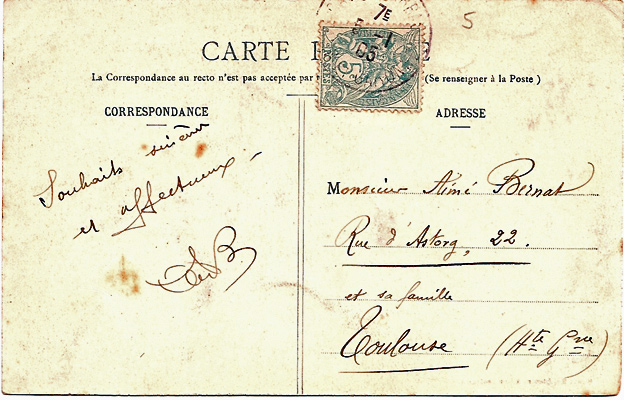 5
7E
CARTE
La Correspondance au recto n'est pas acceptée par (Se renseigner à la Poste)
CORRESPONDANCE
Souhaits sincères
et affectueux
ADRESSE
Monsieur Aimé Bernat
Rue d'Astorg, 22.
et sa famille
Toulouse (Hte Gne)
POSTES
5